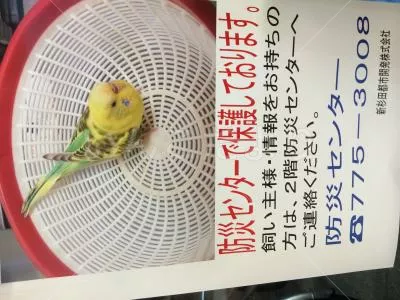 防災センターで保護しております。
飼い主様・情報をお持ちの
方は、2階防災センターへ
ご連絡ください。
防災センター
☎775－3008
新杉田都市開発株式会社